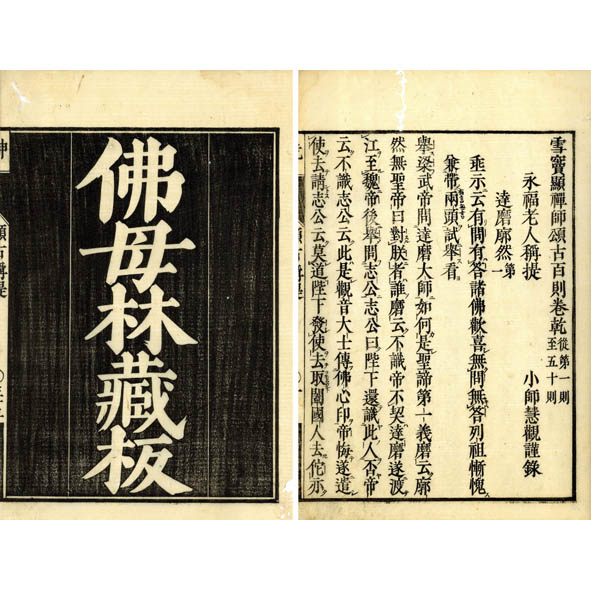 雪竇顯禪師頌古百則卷乾 從第一則至五十則
永福老人稱提 小師慧觀謹錄
達磨廓然 第一
垂示云有問有答諸佛歡喜無問無答列祖慚愧
兼帶兩頭試舉看
舉梁武帝問達磨大師如何是聖諦第一義磨云廓
然無聖帝曰對朕者誰磨云不識帝不契達磨遂渡
江至魏帝後舉問志公志公曰陛下還識此人否帝
云不識志公云此是觀音大士傳佛心印帝悔遂遣
使去請志公云莫道陛下發使去取闔國人去佗亦
佛母林藏板
頌古稱提